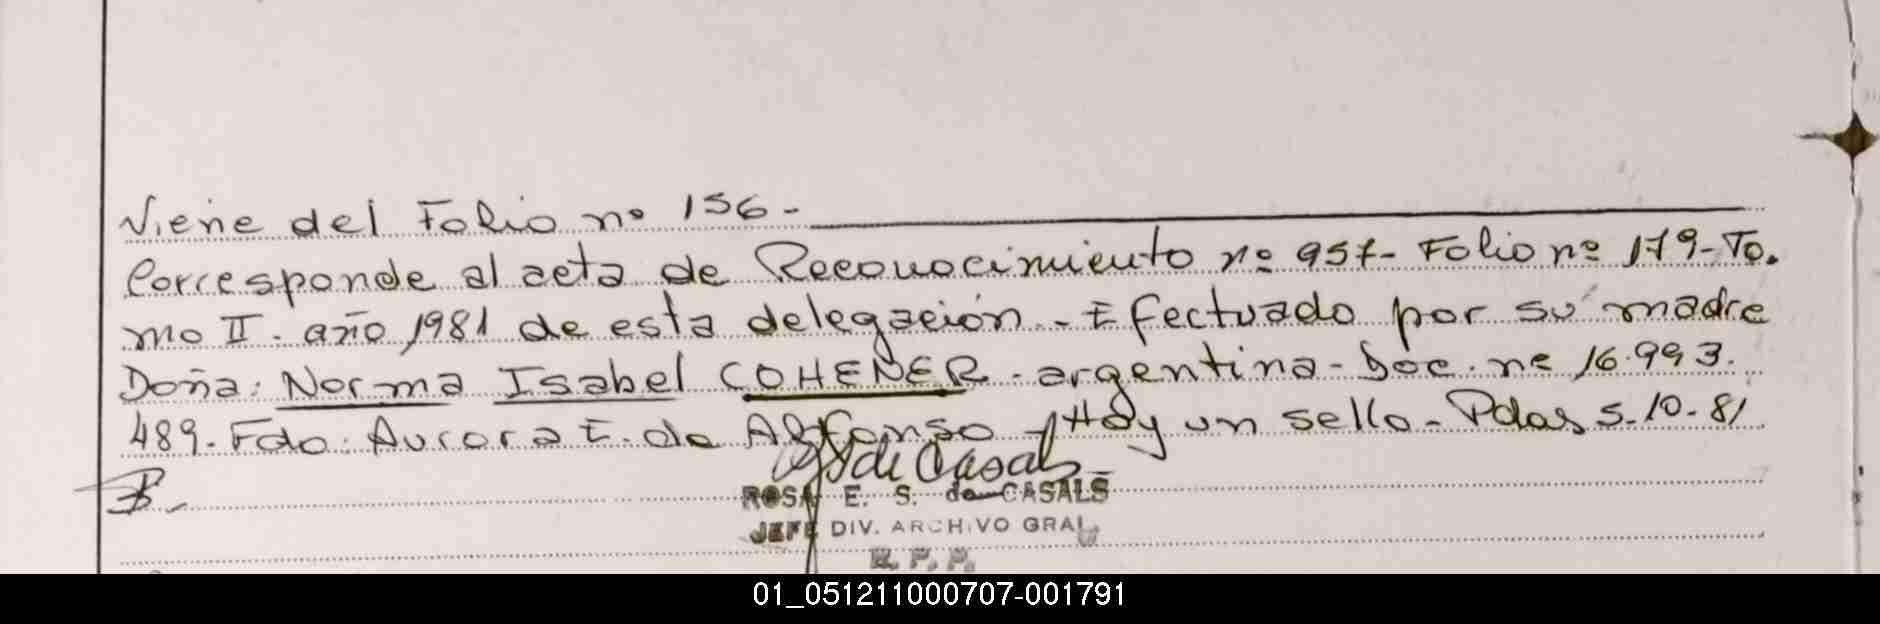 Viene del Folio nº 156-
Corresponde al acta de Reconocimiento nº 957- Folio nº 179- To.
mo II. año 1981 de esta delegación. - Efectuado por su madre
Doña: Norma Isabel COHENER. argentina - Doc. nº 16.993.
489. Fdo: Aurora E. de Alfonso - Hay un sello - Pdas 5-10-81
ROSA E. S. de CASALS
JEFE DIV. ARCHIVO GRAL.
R. P. P.
01_051211000707-001791